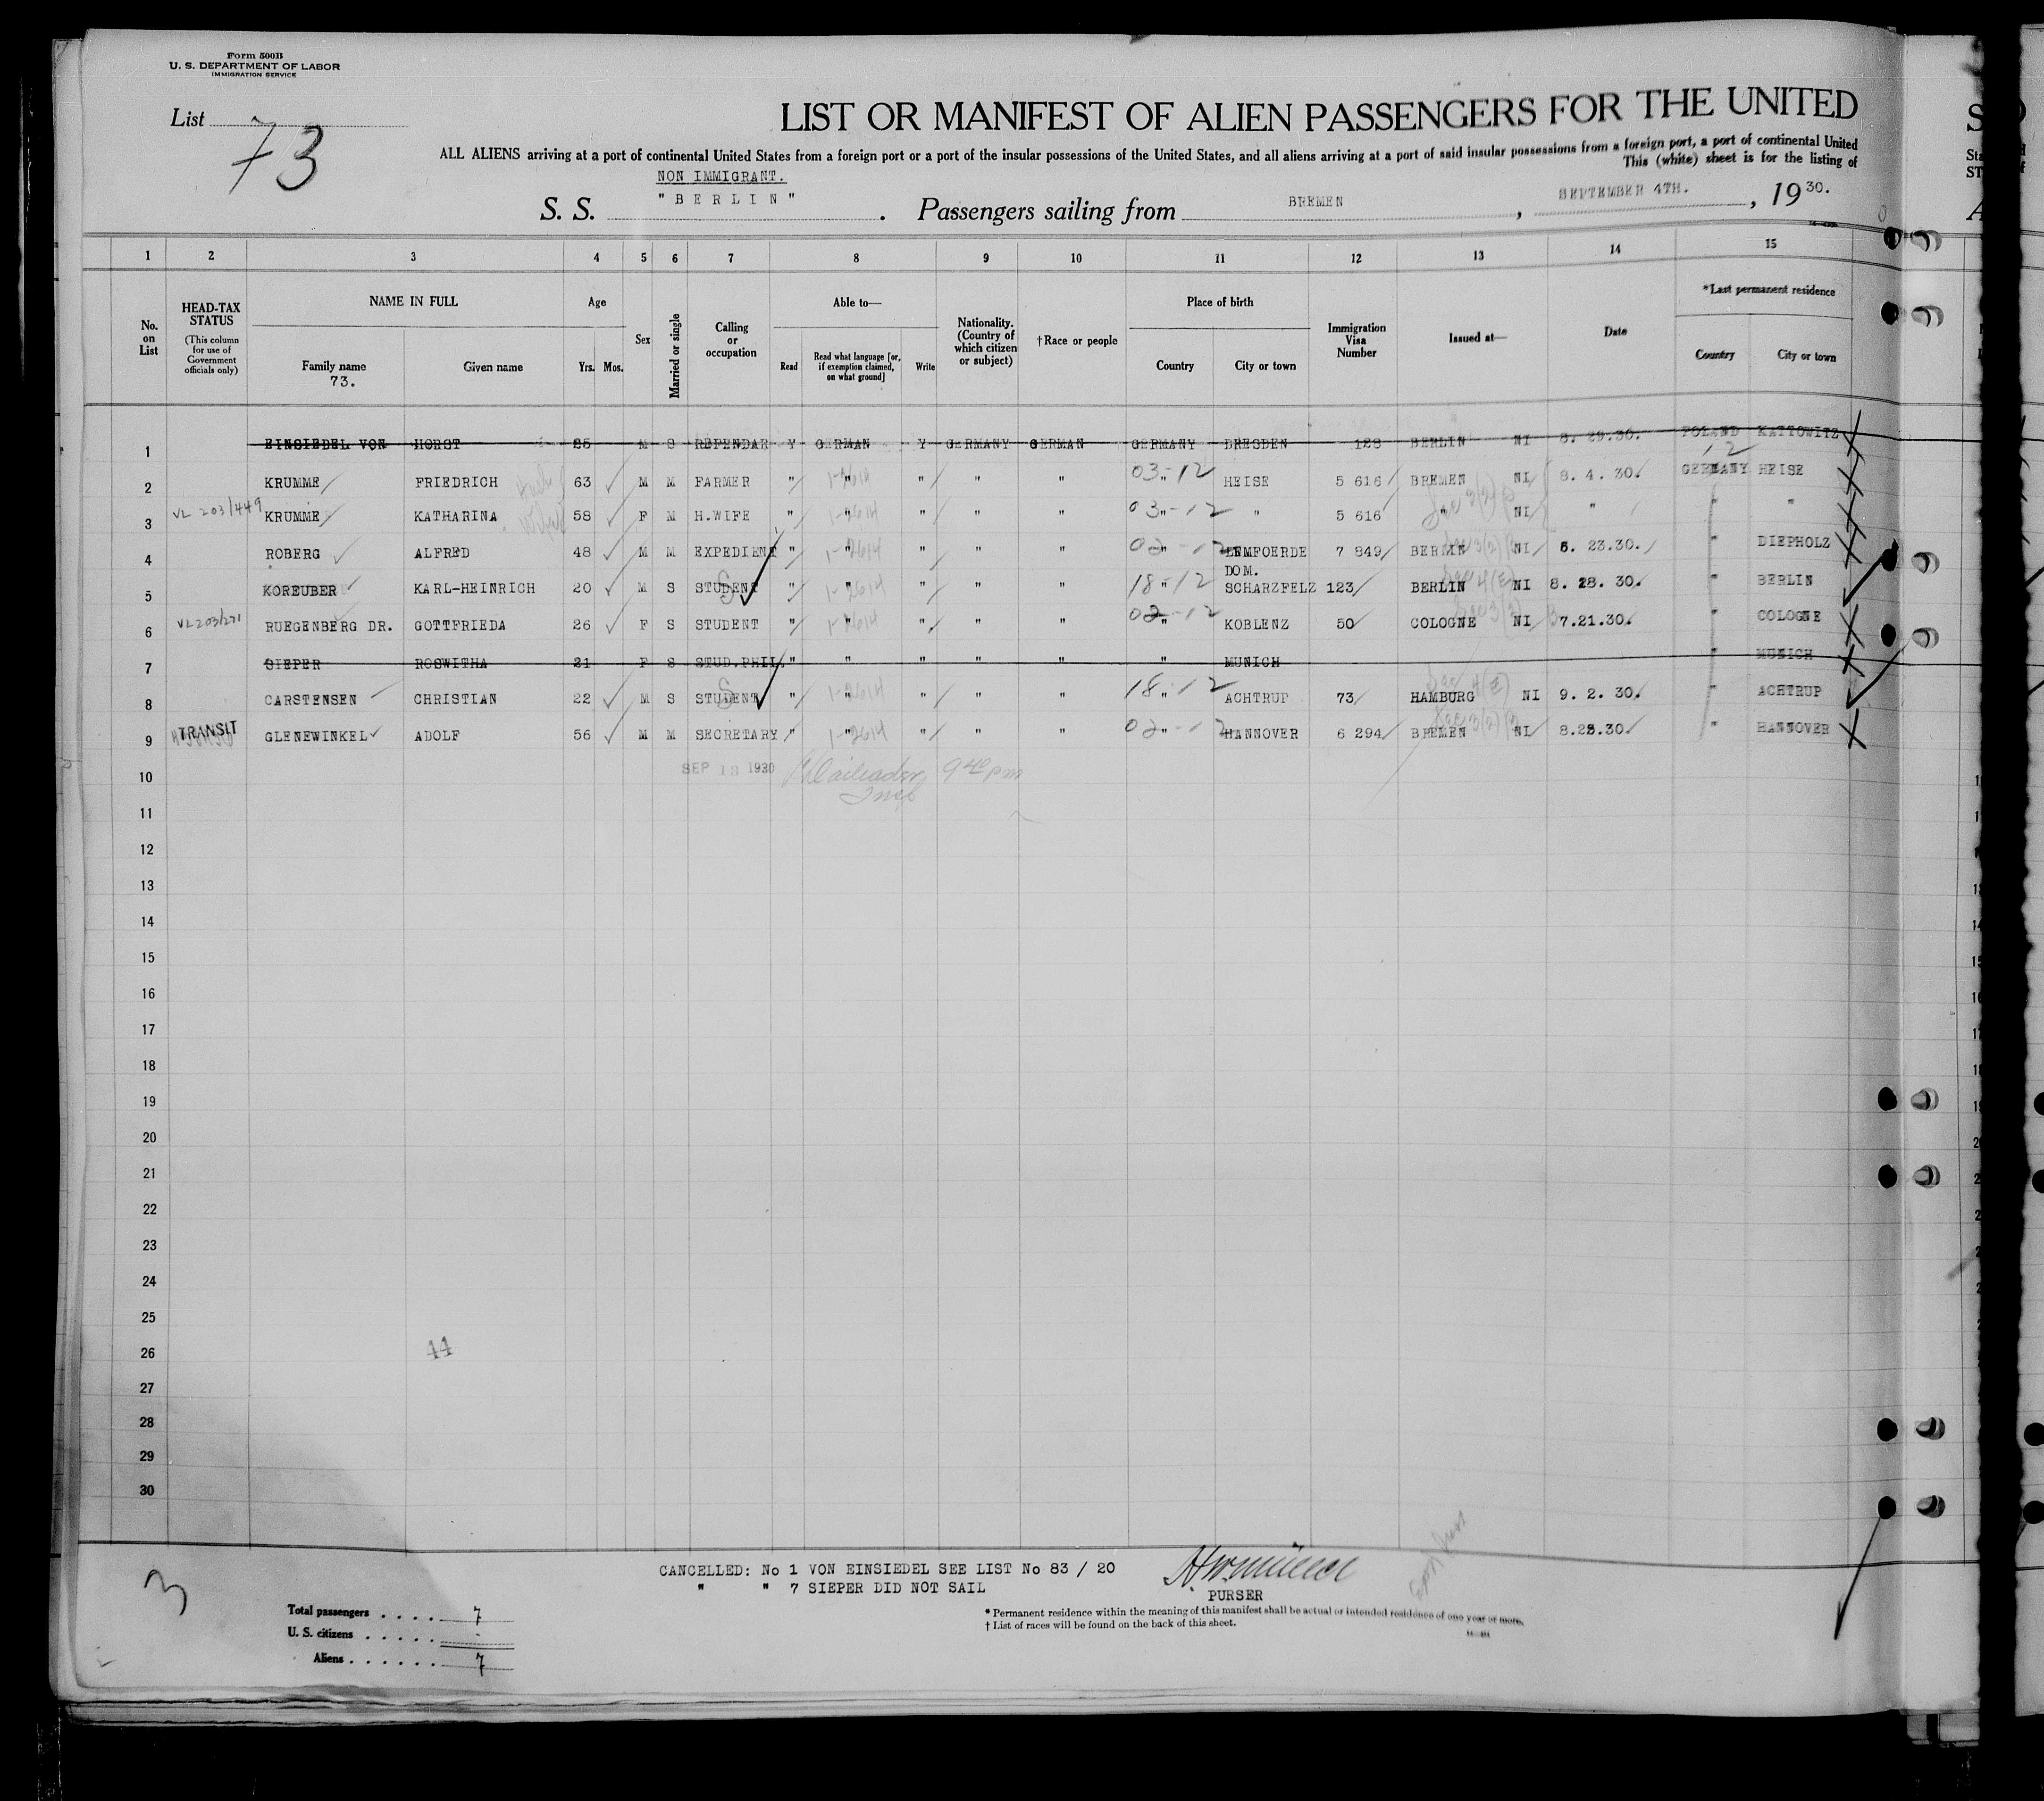 Form 500B
U. S. DEPARTMENT OF LABOR
IMMIGRATION SERVICE
List 73
LIST OR MANIFEST OF ALIEN PASSENGERS FOR THE UNITED
ALL ALIENS arriving at a port of continental United States from a foreign port or a port of the insular possessions of the United States, and all aliens arriving at a port of said insular possessions from a foreign port, a port of continental United
This (white) sheet is for the listing of
NON IMMIGRANT.
S. S. "BERLIN". Passengers sailing from BREMEN, SEPTEMBER 4TH., 1930.
1 2 3 4 5 6 7 8 9 10 11 12 13 14 15
No. on List
HEAD-TAX STATUS (This column for use of Government officials only)
NAME IN FULL Family name 73. Given name
Age Yrs. Mos.
Sex
Married or single
Calling or occupation
Able to— Read Read what language [or, if exemption claimed, on what ground] Write
Nationality. (Country of which citizen or subject)
†Race or people
Place of birth Country City or town
Immigration Visa Number
Issued at—
Date
*Last permanent residence Country City or town
1 EINSIEDEL VON HORST 25 M S REFENDAR Y GERMAN Y GERMANY GERMAN GERMANY DRESDEN 128 BERLIN NI 8. 29.30. POLAND KATTOWITZ
2 KRUMME FRIEDRICH 63 M M FARMER " " " " " 03-12 " HEISE 5 616 BREMEN NI 8. 4. 30. GERMANY HEISE
3 VL 203/449 KRUMME KATHARINA 58 F M H.WIFE " " " " " 03-12 " " 5 616 " NI " " "
4 ROBERG ALFRED 48 M M EXPEDIENT " " " " " 02-12 LEMFOERDE 7 849 BERLIN NI 6. 23.30. " DIEPHOLZ
DOM.
5 KOREUBER KARL-HEINRICH 20 M S STUDENT " " " " " 18-12 " SCHARZFELZ 123 BERLIN NI 8. 28. 30. " BERLIN
6 VL203/271 RUEGENBERG DR. GOTTFRIEDA 26 F S STUDENT " " " " " 02-12 " KOBLENZ 50 COLOGNE NI 7.21.30. " COLOGNE
7 SIEPER ROSWITHA 21 F S STUD.PHIL. " " " " " " MUNICH " MUNICH
8 CARSTENSEN CHRISTIAN 22 M S STUDENT " " " " " 18-12 ACHTRUP 73 HAMBURG NI 9. 2. 30. " ACHTRUP
9 TRANSIT GLENEWINKEL ADOLF 56 M M SECRETARY " " " " " 02-12 " HANNOVER 6 294 BREMEN NI 8.28.30. " HANNOVER
10 SEP 13 1930 9 40 pm
11
12
13
14
15
16
17
18
19
20
21
22
23
24
25
26 44
27
28
29
30
CANCELLED: No 1 VON EINSIEDEL SEE LIST No 83 / 20
" " 7 SIEPER DID NOT SAIL
PURSER
3
Total passengers . . . . 7
U. S. citizens . . . . . -
Aliens . . . . . . 7
* Permanent residence within the meaning of this manifest shall be actual or intended residence of one year or more.
† List of races will be found on the back of this sheet.